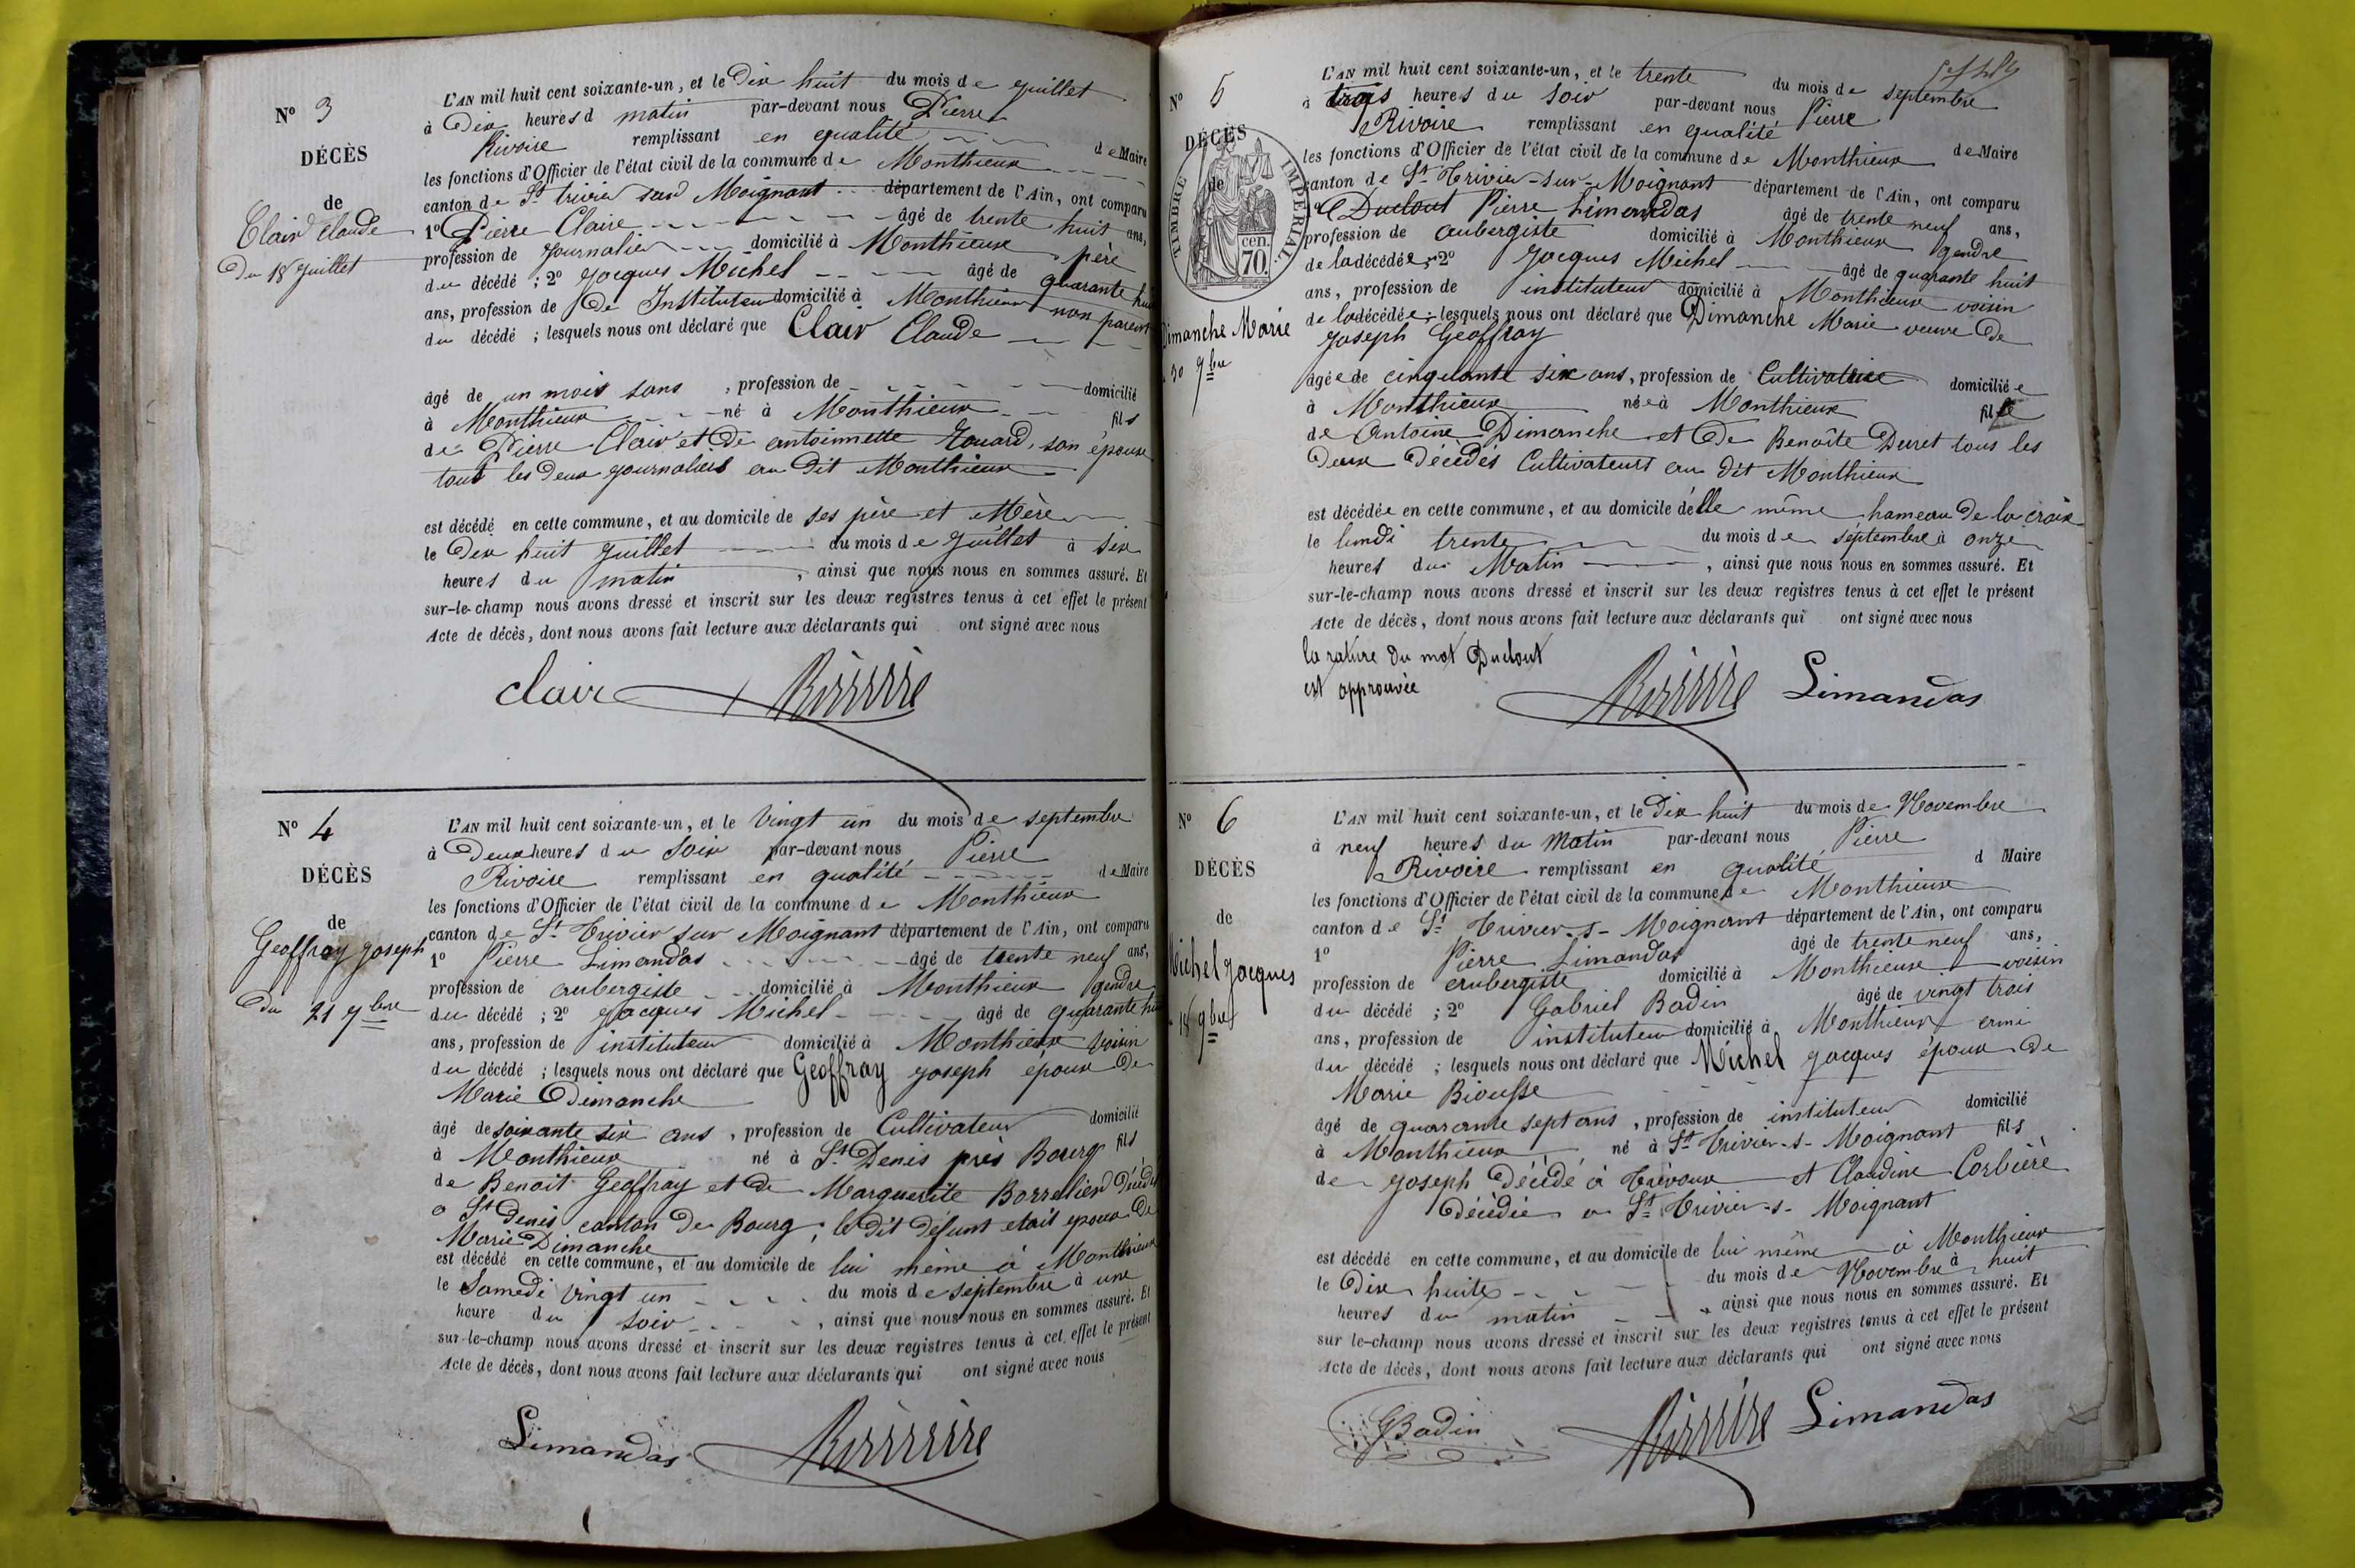 N° 3
DÉCÈS
de
Clair Claude
Du 18 juillet
L'AN mil huit cent soixante-un, et le Dix huit du mois de juillet
à Dix heures d matin par-devant nous Pierre
Rivoire remplissant en qualité de Maire
les fonctions d'Officier de l'état civil de la commune de Monthieux
canton de St trivier sur Moignant département de l'Ain, ont comparu
1° Pierre Claire âgé de trente huit ans,
profession de journalier domicilié à Monthieux père
du décédé ; 2° Jacques Michel âgé de quarante huit
ans, profession de De Instituteur domicilié à Monthieux non parent
du décédé ; lesquels nous ont déclaré que Clair Claude
âgé de un mois sans , profession de domicilié
à Monthieux né à Monthieux fils
de Pierre Clair et De antoinnette Jouard, son épouse
tout les deux journaliers au dit Monthieux
est décédé en cette commune, et au domicile de ses père et Mère
le Dix huit juillet du mois de juillet à six
heures du matin , ainsi que nous nous en sommes assuré. Et
sur-le-champ nous avons dressé et inscrit sur les deux registres tenus à cet effet le présent
Acte de décès, dont nous avons fait lecture aux déclarants qui ont signé avec nous
clair Rivoire
N° 4
DÉCÈS
de
Geoffray joseph
Du 21 7bre
L'AN mil huit cent soixante-un, et le Vingt un du mois de septembre
à Deux heures du soir par-devant nous Pierre
Rivoire remplissant en qualité de Maire
les fonctions d'Officier de l'état civil de la commune de Monthieux
canton de St Trivier sur Moignant département de l'Ain, ont comparu
1° Pierre Limandas âgé de trente neuf ans,
profession de aubergiste domicilié à Monthieux gendre
du décédé ; 2° Jacques Michel âgé de quarante huit
ans, profession de instituteur domicilié à Monthieux voisin
du décédé ; lesquels nous ont déclaré que Geoffray joseph époux De
Marie Dimanche
âgé de soixante six ans , profession de Cultivateur domicilié
à Monthieux né à St Denis près Bourg fils
de Benoit Geoffray et de Marguerite Borrelier Décédés
a St Denis canton de Bourg, le dit défunt etait epoux De
Marie Dimanche
est décédé en cette commune, et au domicile de lui même à Monthieux
le Samedi vingt un du mois de septembre à une
heure du soir , ainsi que nous nous en sommes assuré. Et
sur-le-champ nous avons dressé et inscrit sur les deux registres tenus à cet effet le présent
Acte de décès, dont nous avons fait lecture aux déclarants qui ont signé avec nous
Limandas Rivoire
N° 5
DÉCÈS
de
TIMBRE IMPÉRIAL
cen.
70.
Dimanche Marie
30 7bre
L'AN mil huit cent soixante-un, et le trente du mois de septembre
à trois heures du soir par-devant nous Pierre
Rivoire remplissant en qualité de Maire
les fonctions d'Officier de l'état civil de la commune de Monthieux
canton de St Trivier-sur-Moignant département de l'Ain, ont comparu
1° Duclout Pierre Limandas âgé de trente neuf ans,
profession de aubergiste domicilié à Monthieux gendre
de la décédée ; 2° Jacques Michel âgé de quarante huit
ans, profession de instituteur domicilié à Monthieux voisin
de la décédée ; lesquels nous ont déclaré que Dimanche Marie veuve De
Joseph Geoffray
âgée de cinquante six ans, profession de Cultivatrice domiciliée
à Monthieux née à Monthieux fille
de Antoine Dimanche et De Benoîte Duret tous les
Deux décédés Cultivateurs au dit Monthieux
est décédée en cette commune, et au domicile d'elle même hameau De la croix
le lundi trente du mois de septembre à onze
heures du Matin , ainsi que nous nous en sommes assuré. Et
sur-le-champ nous avons dressé et inscrit sur les deux registres tenus à cet effet le présent
Acte de décès, dont nous avons fait lecture aux déclarants qui ont signé avec nous
la rature du mot Duclout
est approuvée
Rivoire Limandas
N° 6
DÉCÈS
de
Michel Jacques
18 9bre
L'AN mil huit cent soixante-un, et le Dix huit du mois de Novembre
à neuf heures du Matin par-devant nous Pierre
Rivoire remplissant en qualité d Maire
les fonctions d'Officier de l'état civil de la commune de Monthieux
canton de St Trivier-s-Moignant département de l'Ain, ont comparu
1° Pierre Limandas âgé de trente neuf ans,
profession de aubergiste domicilié à Monthieux voisin
du décédé ; 2° Gabriel Badin âgé de vingt trois
ans, profession de instituteur domicilié à Monthieux ami
du décédé ; lesquels nous ont déclaré que Michel jacques époux De
Marie Biousse
âgé de quarante sept ans , profession de instituteur domicilié
à Monthieux né à St Trivier-s-Moignant fils
de joseph Décédé à Trévoux et Claudine Corbière
décédée a St Trivier-s-Moignant
est décédé en cette commune, et au domicile de lui même à Monthieux
le Dix huite du mois de Novembre à huit
heures du matin , ainsi que nous nous en sommes assuré. Et
sur le-champ nous avons dressé et inscrit sur les deux registres tenus à cet effet le présent
Acte de décès, dont nous avons fait lecture aux déclarants qui ont signé avec nous
GBadin Rivoire Limandas